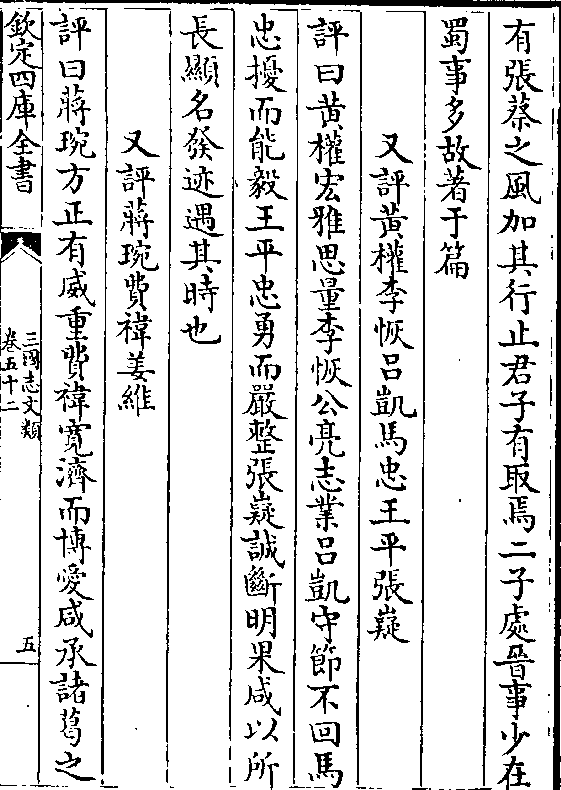 有張蔡之風加其行止君子有取焉二子處晉事少在
蜀事多故著于篇
又評黄權李恢吕凱馬忠王平張嶷
評曰黄權宏雅思量李恢公亮志業吕凱守節不回馬
忠擾而能毅王平忠勇而嚴整張嶷誠斷明果咸以所
長顯名發迹遇其時也
又評蔣琬費禕姜維
評曰蔣琬方正有威重費禕寛濟而博愛咸承諸葛之
欽定四庫全書
三國志文類
卷五十二
五